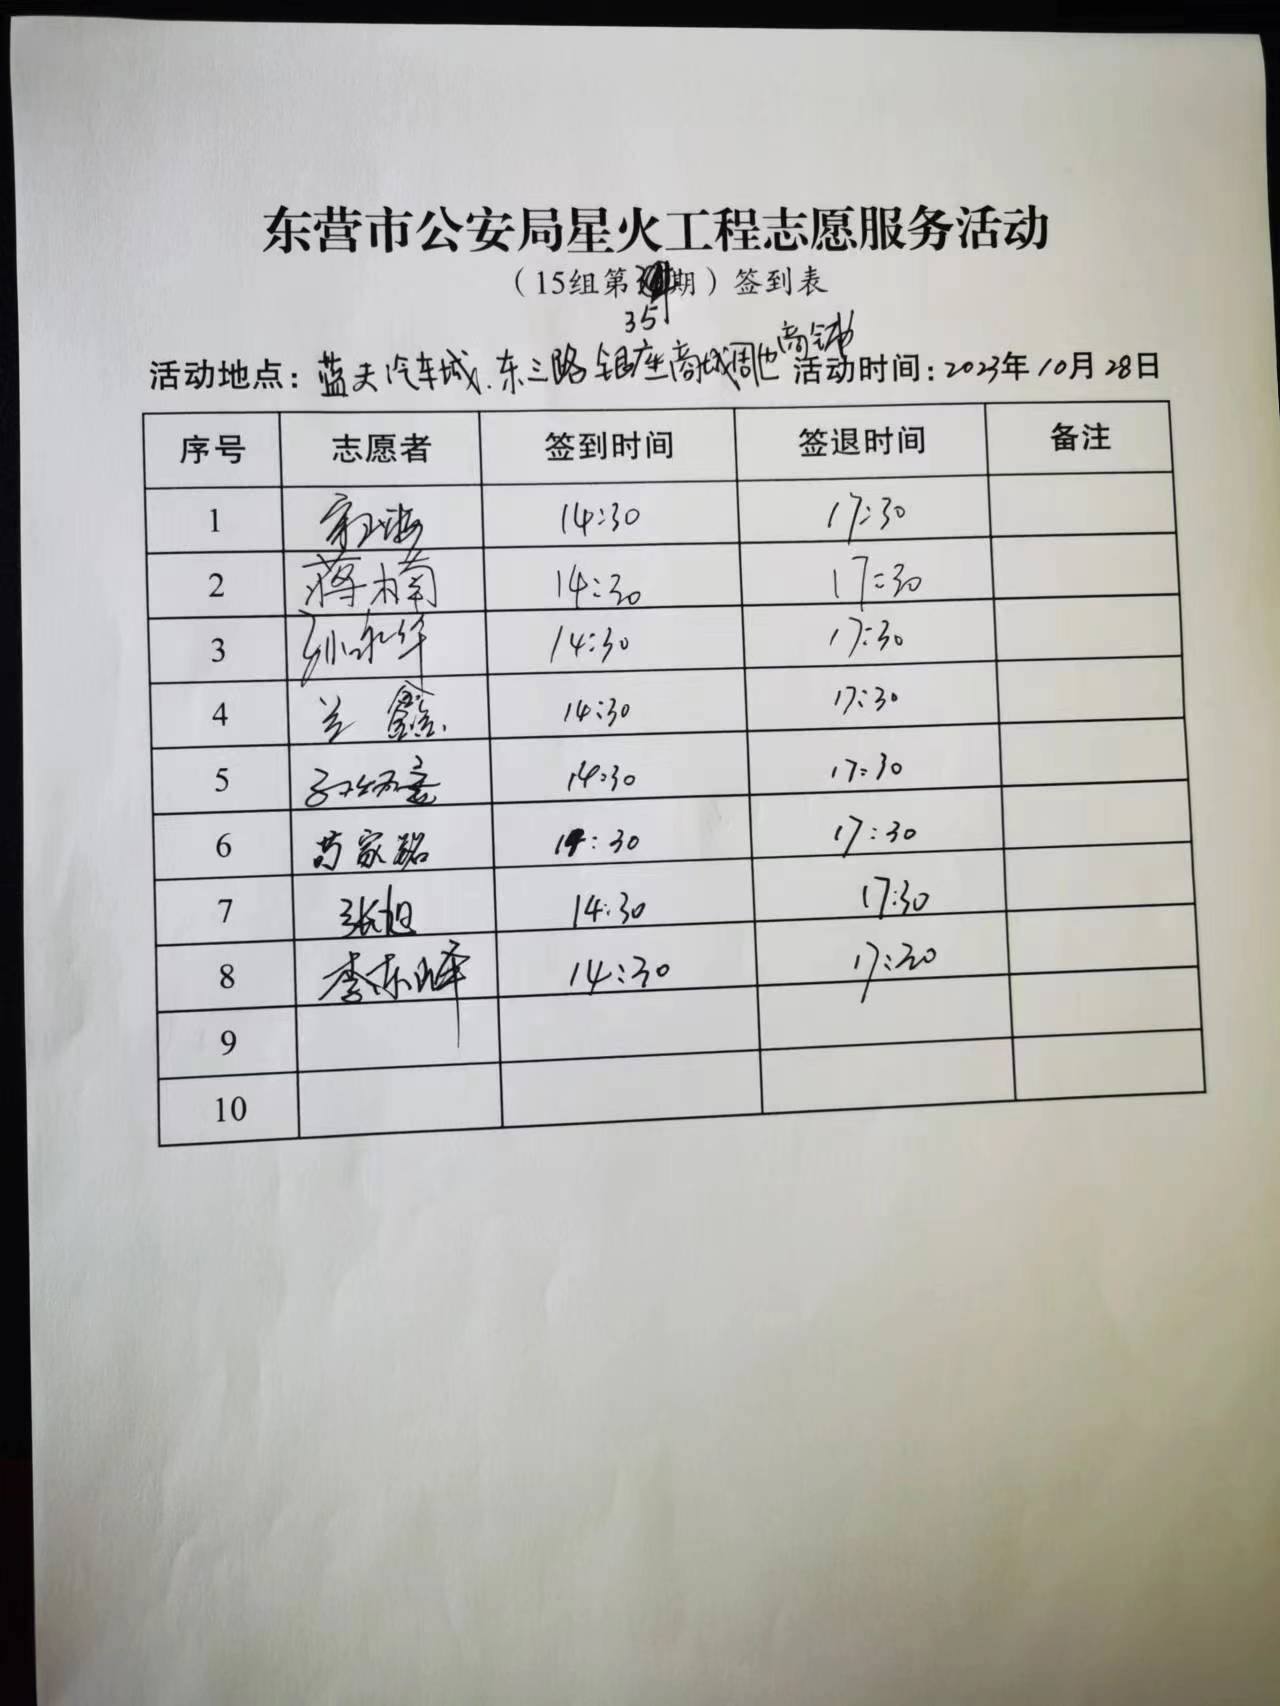 东营市公安局星火工程志愿服务活动
（15组第35期）签到表
活动地点：蓝天汽车城、东三路银座商城周边商铺 活动时间：2023年10月28日
序号 志愿者 签到时间 签退时间 备注
1 14:30 17:30
2 蒋楠 14:30 17:30
3 孙咏华 14:30 17:30
4 兰鑫 14:30 17:30
5 14:30 17:30
6 苟家铭 14:30 17:30
7 张旭 14:30 17:30
8 李东峰 14:30 17:30
9
10